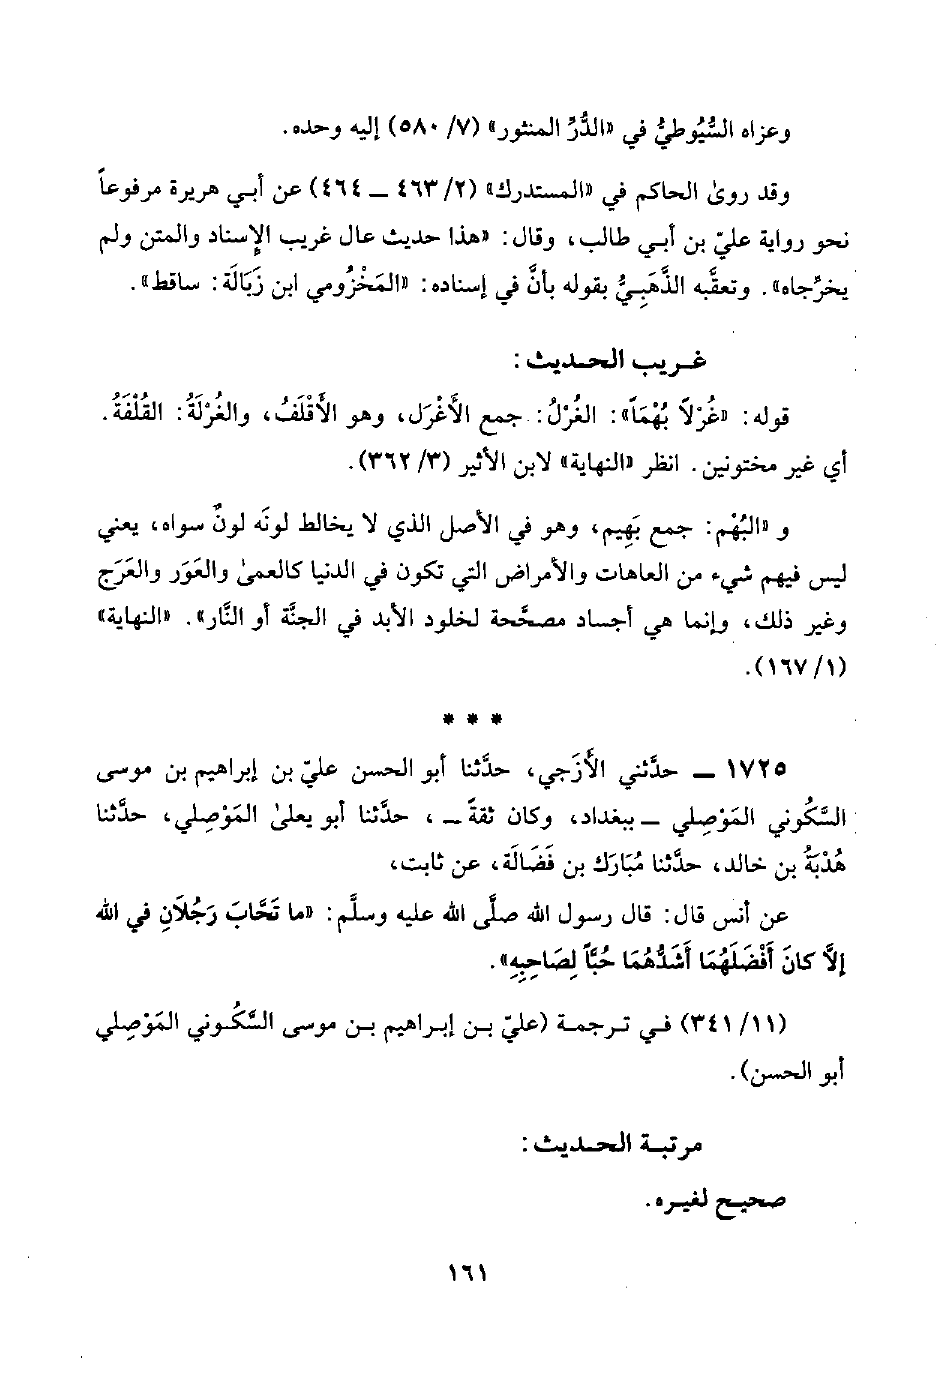 وعزاه السُّيُوطيُّ في «الدُّرِّ المنثور» (٧/ ٥٨٠) إليه وحده.
وقد روىٰ الحاكم في «المستدرك» (٢/ ٤٦٣ ــ ٤٦٤) عن أبي هريرة مرفوعاً
نحو رواية عليّ بن أبي طالب، وقال: «هذا حديث عال غريب الإِسناد والمتن ولم
يخرِّجاه». وتعقَّبه الذَّهَبِيُّ بقوله بأنَّ في إسناده: «المَخْزُومي ابن زَبَالَة: ساقط».
غريب الحديث:
قوله: «غُرْلاً بُهْمَاً»: الغُرْلُ: جمع الأَغْرَل، وهو الأَقْلَفُ، والغُرْلَةُ: القُلْفَةُ.
أي غير مختونين. انظر «النهاية» لابن الأثير (٣/ ٣٦٢).
و «البُهْم: جمع بَهِيم، وهو في الأصل الذي لا يخالط لونَه لونٌ سواه، يعني
ليس فيهم شيء من العاهات والأمراض التي تكون في الدنيا كالعمىٰ والعَوَر والعَرَج
وغير ذلك، وإنما هي أجساد مصحَّحة لخلود الأبد في الجنَّة أو النَّار». «النهاية»
(١/ ١٦٧).
* * *
١٧٢٥ ــ حدَّثني الأَزَجي، حدَّثنا أبو الحسن عليّ بن إبراهيم بن موسى
السَّكُوني المَوْصِلي ــ ببغداد، وكان ثقةً ــ ، حدَّثنا أبو يعلىٰ المَوْصِلي، حدَّثنا
هُدْبَةُ بن خالد، حدَّثنا مُبَارَك بن فَضَالَة، عن ثابت،
عن أنس قال: قال رسول الله صلَّى الله عليه وسلَّم: «ما تَحَابَّ رَجُلَانِ في الله
إلَّا كانَ أَفْضَلَهُمَا أَشَدُّهُمَا حُبَّاً لِصَاحِبِهِ».
(١١/ ٣٤١) في ترجمة (عليّ بن إبراهيم بن موسى السَّكُوني المَوْصِلي
أبو الحسن).
مرتبة الحديث:
صحيح لغيره.
١٦١